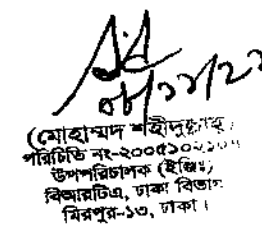 ০৮/১১/২২
(মোহাম্মদ শহীদুল্লাহ্)
পরিচিতি নং-২০০৫১০২
উপপরিচালক (ইঞ্জিঃ)
বিআরটিএ, ঢাকা বিভাগ
মিরপুর-১৩, ঢাকা।